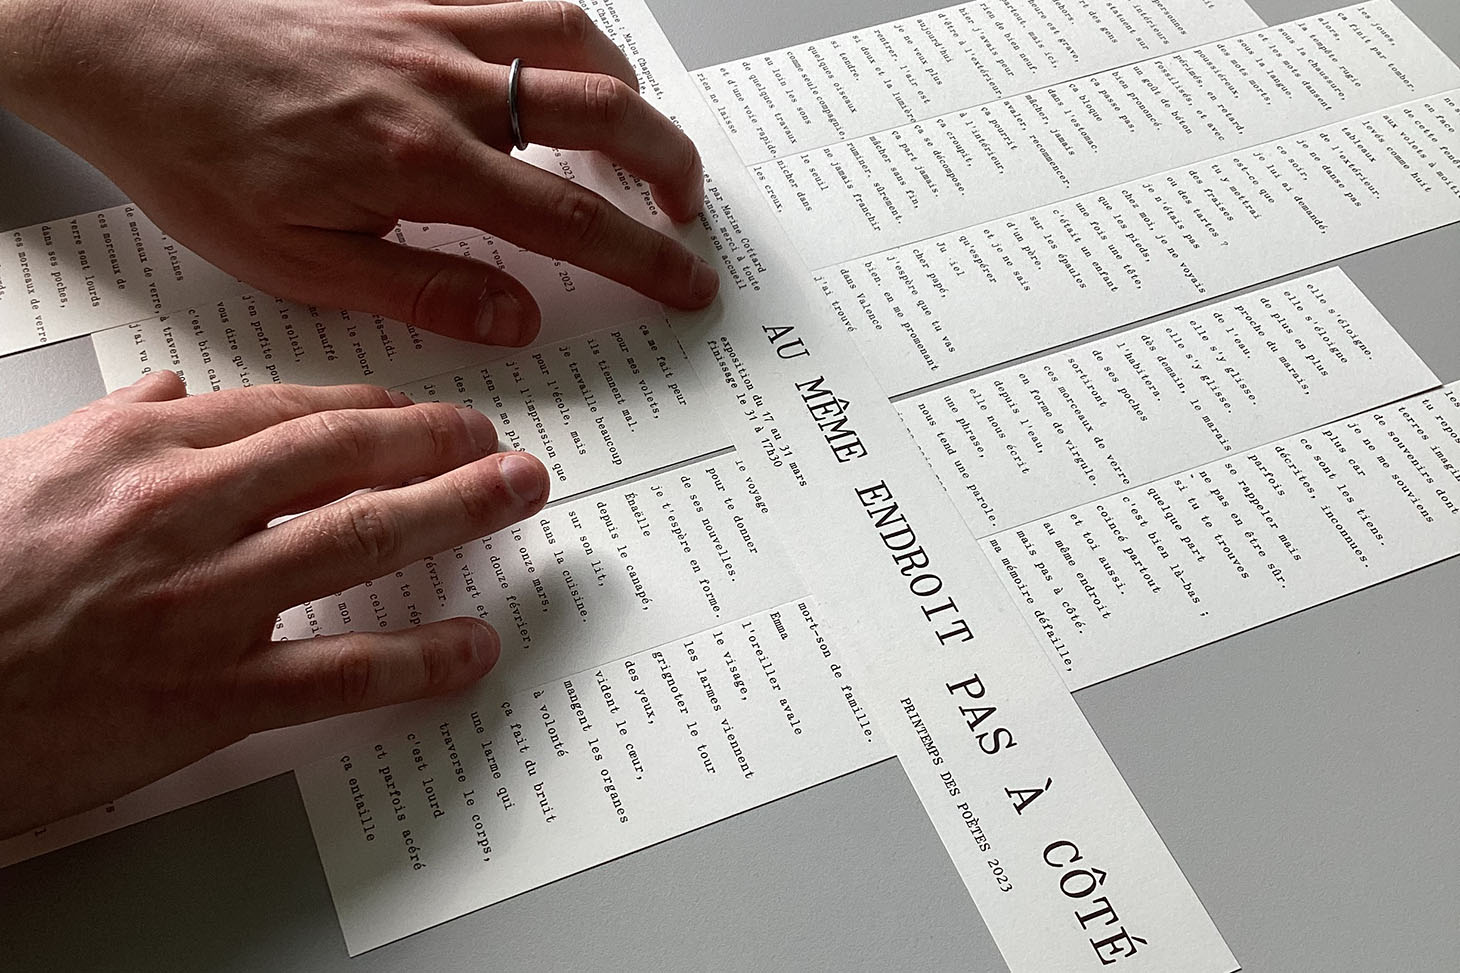 AU MÊME ENDROIT PAS À CÔTÉ
PRINTEMPS DES POÈTES 2023
exposition du 17 au 31 mars
finissage le 31 à 17h30
par Marine Cottard
merci à toute
pour son accueil
lence : Malou Chapurlat,
mars 2023
Pesce
les creux,
nicher dans
le seuil
ne jamais franchir
ruminer, sûrement.
mâcher sans fin,
ça part jamais.
ça se décompose,
ça croupit,
à l'intérieur,
ça pourrit
avaler, recommencer.
mâcher, jamais
dans l'estomac.
ça bloque
ça passe pas,
bien prononcé.
un goût de béton
fossilisés, et avec
périmés, en retard,
poussiéreux,
des mots morts,
sous la langue,
et les mots dansent
sous la chaussure,
la tempête rugit
alors,
ça finit par tomber.
les joues,
rien ne laisse
et d'une voie rapide.
de quelques travaux
au loin les sons
comme seule compagnie,
quelques oiseaux
si tendre.
si doux et la lumière
rentrer, l'air est
je ne veux plus
aujourd'hui
d'être à l'extérieur.
hier j'avais peur
rien de bien neuf
partout. mais ici
heure est grave
dehors.
des gens
statuent sur
intérieurs
personnes
j'ai trouvé
dans Valence
bien, en me promenant
j'espère que tu vas
cher papé,
Ju iel
qu'espérer
et je ne sais
d'un père,
sur les épaules
c'était un enfant
une fois une tête,
que les pieds,
chez moi, je ne voyais
je n'étais pas
ou des tartes ?
des fraises
tu y mettrai
est-ce que
je lui ai demandé,
ce soir.
je ne danse pas
l'extérieur.
tableaux
levés comme huit
aux volets à moitié
de cette fenêtre
en face
nous tend une parole.
une phrase,
elle nous écrit
depuis l'eau,
en forme de virgule.
ces morceaux de verre
de ses poches
sortiront
l'habitera,
dès demain, le marais
elle s'y glisse.
elle s'y glisse.
de l'eau.
proche du marais,
de plus en plus
elle s'éloigne
elle s'éloigne,
ma mémoire défaille,
au même endroit
mais pas à côté.
et toi aussi.
coincé partout
c'est bien là-bas ;
quelque part
si tu te trouves
ne pas en être sûr.
se rappeler mais
parfois
décrites, inconnues.
ce sont les tiens.
plus car
je ne me souviens
de souvenirs dont
terres imagin
tu repos
les
ça me fait peur
pour mes volets,
ils tiennent mal.
je travaille beaucoup
pour l'école, mais
j'ai l'impression que
rien ne me plaît
des fro
je m
le voyage
pour te donner
de ses nouvelles.
je t'espère en forme.
Énaëlle
depuis le canapé,
sur son lit,
dans la cuisine.
le onze mars,
le douze février,
le vingt et
février.
celle
te rép
mon
mort-son de famille.
Emma
l'oreiller avale
le visage,
les larmes viennent
grignoter le tour
des yeux,
vident le cœur,
mangent les organes
à volonté
ça fait du bruit
une larme qui
traverse le corps,
c'est lourd
et parfois acéré
ça entaille
après-midi.
sur le rebord
chauffé
le soleil,
j'en profite pour
vous dire qu'ici
c'est bien calme
j'ai vu q
à travers mo
pleines
de morceaux de verre,
ces morceaux de
verre sont lourds
dans ses poches,
ces morceaux de verre